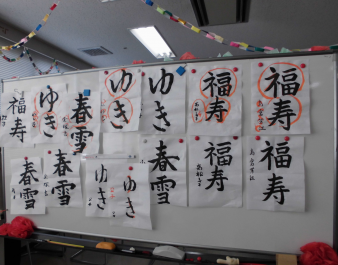 福寿
ゆき
春雪
ゆき
ゆき
福寿
福寿
春雪
春雪
ゆき
ゆき
春雪
福寿
福寿